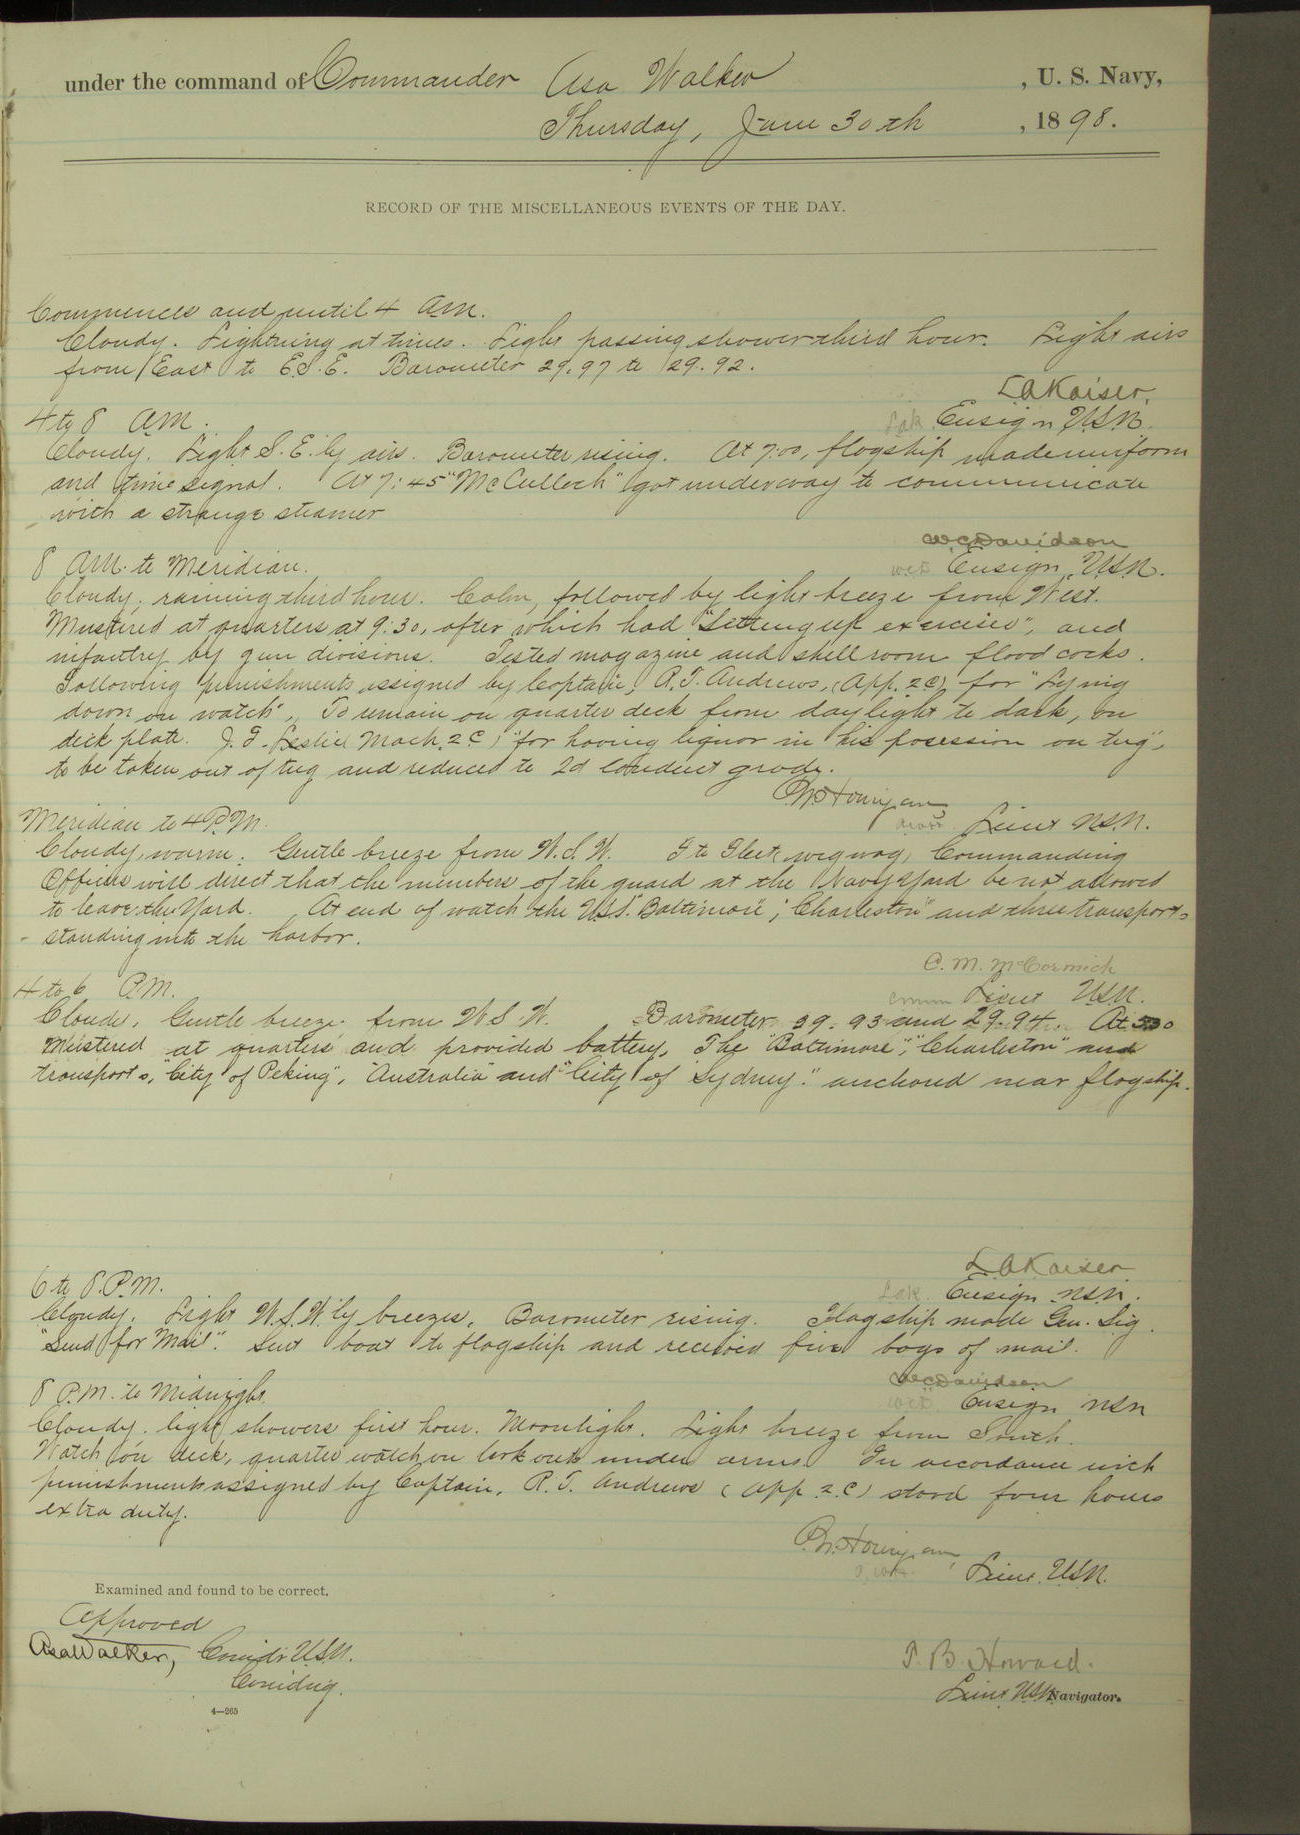 under the command of Commander Asa Walker , U. S. Navy,
Thursday, June 30th , 1898.
RECORD OF THE MISCELLANEOUS EVENTS OF THE DAY.
Commences and until 4 AM.
Cloudy. Lightning at times. Light passing shower third hour. Light airs
from East to E.S.E. Barometer 29.97 to 29.92.
LAKaiser,
Lak Ensign USN.
4 to 8 AM.
Cloudy. Light S.E.'ly airs. Barometer rising. At 7:00, flagship made uniform
and time signal. At 7:45 "McCulloch" got underway to communicate
with a strange steamer
WCDavidson
Ensign, USN.
8 AM. to Meridian.
Cloudy, raining third hour. Calm, followed by light breeze from West.
Mustered at quarters at 9:30, after which had "Setting up exercises", and
infantry by gun divisions. Tested magazine and shell room flood cocks.
Following punishments assigned by Captain, R.T. Andrews, (App. 2C) for "Lying
down on watch", To remain on quarter deck from daylight to dark, on
deck plate. J. F. Leslie Mach. 2C) "for having liquor in his posession on tug",
to be taken out of tug and reduced to 2d conduct grade.
Lieut USN.
Meridian to 4 P.M.
Cloudy, warm. Gentle breeze from W.S.W. F to Fleet wigwag, Commanding
Officers will direct that the members of the guard at the Navy Yard be not allowed
to leave the Yard. At end of watch the USS. "Baltimore", "Charleston" and three transports
standing into the harbor.
C. M. McCormick
cmm Lieut USN.
4 to 6 P.M.
Cloudy, Gentle breeze from W.S.W. Barometer 39.93 and 29.94. At 5:30
Mustered at quarters and provided battery. The "Baltimore", "Charleston" and
transports, "City of Peking", "Australia" and "City of Sydney." anchored near flagship.
LAKaiser
Lak. Ensign USN.
6 to 8. P.M.
Cloudy. Light W.S.W.'ly breezes. Barometer rising. Flagship made Gen. Sig.
"Send for Mail". Sent boat to flagship and received five bags of mail.
WCDavidson
Ensign USN
8 P.M. to Midnight
Cloudy. light showers first hour. Moonlight. Light breeze from South.
Watch on deck, quarter watch on lookouts under arms. In accordance with
punishments assigned by Captain, R. T. Andrews (App. 2.C) stood four hours
extra duty.
Lieut. USN.
Examined and found to be correct.
Approved
Asa Walker, Comdr USN.
Comdg.
T. B. Howard.
Lieut USN Navigator.
4—265